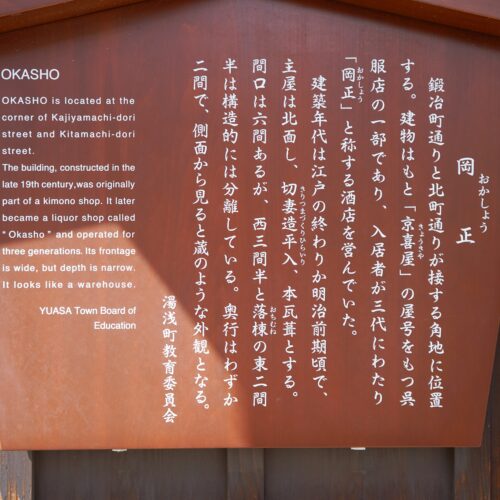 OKASHO
OKASHO is located at the
corner of Kajiyamachi-dori
street and Kitamachi-dori
street.
The building, constructed in the
late 19th century,was originally
part of a kimono shop. It later
became a liquor shop called
"Okasho" and operated for
three generations. Its frontage
is wide, but depth is narrow.
It looks like a warehouse.
YUASA Town Board of
Education
岡正
おかしょう
鍛冶町通りと北町通りが接する角地に位置
する。建物はもと「京喜屋」の屋号をもつ呉
きょうきや
服店の一部であり、入居者が三代にわたり
「岡正」と称する酒店を営んでいた。
おかしょう
建築年代は江戸の終わりか明治前期頃で、
主屋は北面し、切妻造平入、本瓦葺とする。
きりつまづくりひらいり
間口は六間あるが、西三間半と落棟の東二間
おちむね
半は構造的には分離している。奥行はわずか
二間で、側面から見ると蔵のような外観となる。
湯浅町教育委員会